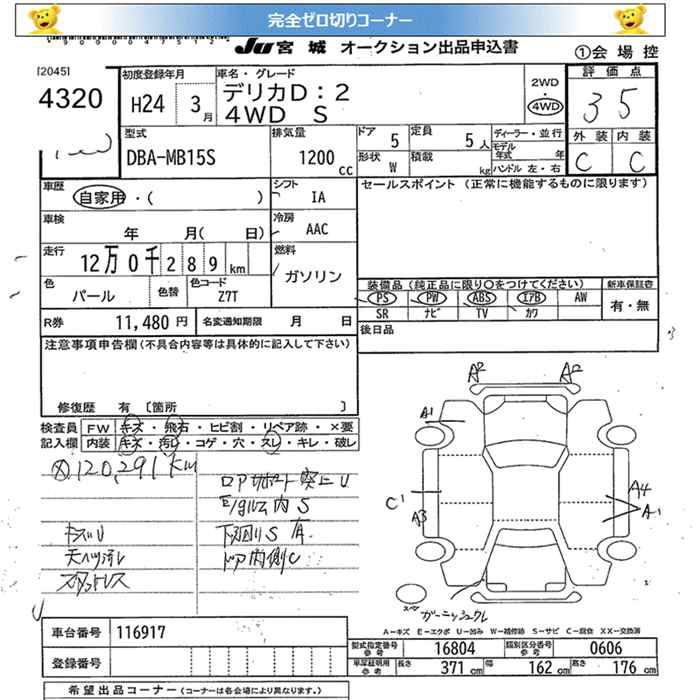 完全ゼロ切りコーナー
JU宮城 オークション出品申込書
①会場控
[2045]
4320
初度登録年月
H24 3月
車名・グレード
デリカD:2
4WD S
2WD
・
4WD
評価点
3 5
外装 内装
C C
型式
DBA-MB15S
排気量
1200cc
ドア 5
定員 5人
形状 W
積載 kg
ディーラー・並行
モデル年式 年
ハンドル 左・右
車歴
自家用・( )
シフト IA
セールスポイント (正常に機能するものに限ります)
車検
年 月( 日)
冷房 AAC
走行
12万0千289km
燃料
ガソリン
色
パール
色替
色コード
Z7T
装備品 (純正品に限り〇をつけてください)
PS PW ABS エアB AW
SR ナビ TV カワ
新車保証書
有・無
R券 11,480円
名変通知期限 月 日
後日品
注意事項申告欄(不具合内容等は具体的に記入して下さい)
修復歴 有 〔箇所 〕
検査員 FW キズ・飛石・ヒビ割・リペア跡・×要
記入欄 内装 キズ・汚レ・コゲ・穴・スレ・キレ・破レ
120,291km
キズU
下廻りS
ドア内側C
A2 A2
A1
C1
A3
A4
A1
ガーニッシュクレ
A-キズ E-エクボ U-凹み W-補修跡 S-サビ C-腐食 XX-交換済
車台番号 116917
登録番号
型式指定番号 参考 16804
類別区分番号 参考 0606
車庫証明用 参考 長さ 371cm 幅 162cm 高さ 176cm
希望出品コーナー (コーナーは各会場により異なります。)